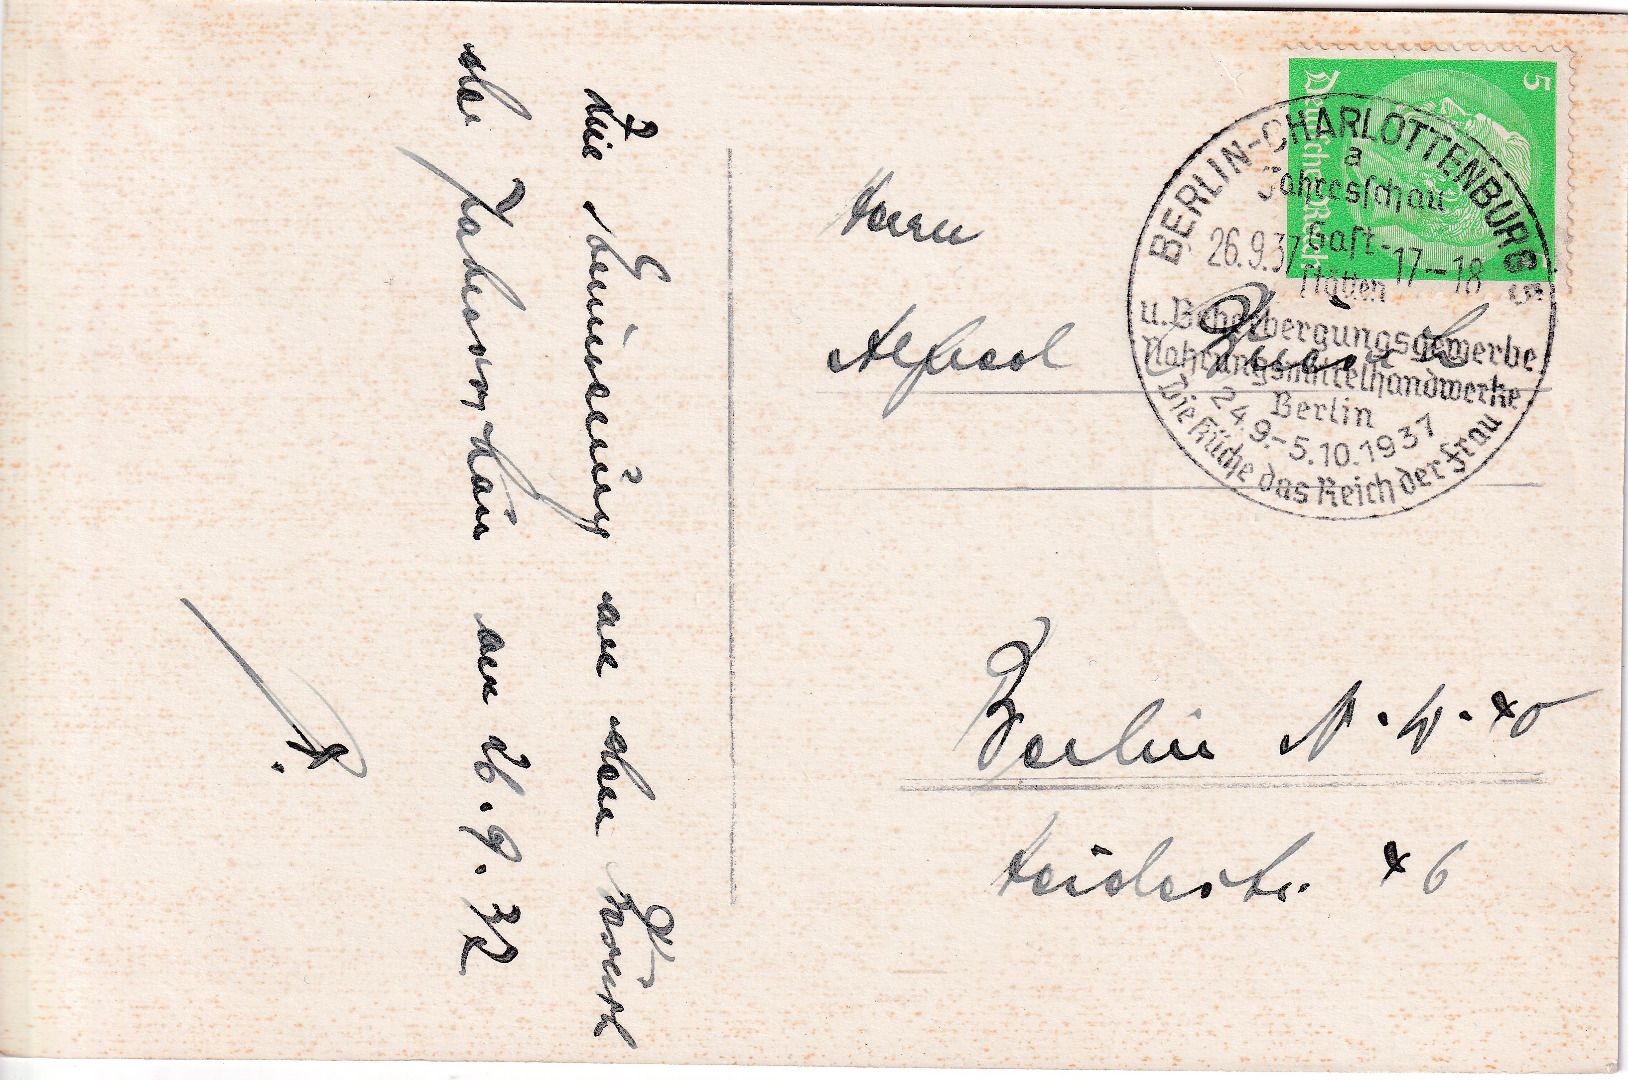 Zur Erinnerung an den Besuch
der Jahresschau am 26.9.37
A.
Herrn
Alfred
Berlin N.W. 40
Heidestr. 46
5
Deutsches Reich
BERLIN-CHARLOTTENBURG 5
a
Jahresschau
Gast-
26.9.37 17-18
stätten
u. Beherbergungsgewerbe
Nahrungsmittelhandwerke
Berlin
24.9.-5.10.1937
Die Küche das Reich der Frau